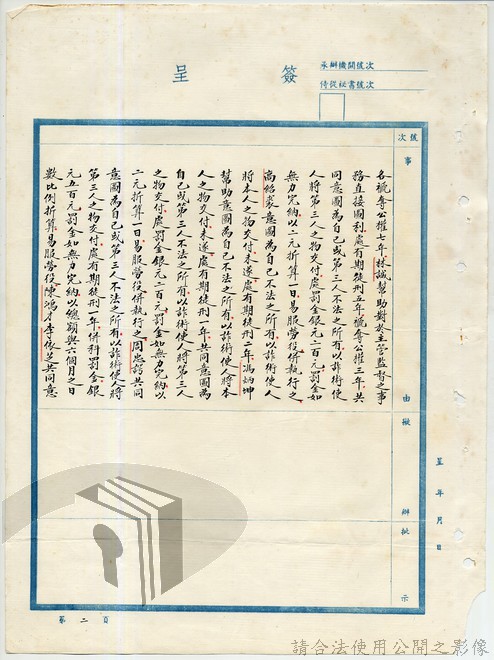 承辦機關號次
侍從祕書號次
簽呈
號次
事由
擬辦
批示
呈 年 月 日
各褫奪公權七年林誠幫助對於主管監督之事
務直接圖利處有期徒刑五年褫奪公權三年共
同意圖為自己或第三人不法之所有以詐術使
人將第三人之物交付處罰金銀元二百元罰金如
無力完納以二元折算一日易服勞役併執行之
高紹裘意圖為自己不法之所有以詐術使人
將本人之物交付未遂處有期徒刑二年馮炳坤
幫助意圖為自己不法之所有以詐術使人將本
人之物交付未遂處有期徒刑一年共同意圖為
自己或第三人不法之所有以詐術使人將第三人
之物交付處罰金銀元二百元罰金如無力完納以
二元折算一日易服勞役併執行之周忠諮共同
意圖為自己或第三人不法之所有以詐術使人將
第三人之物交付處有期徒刑一年併科罰金銀
元五百元罰金如無力完納以總額與六個月之日
數比例折算易服勞役陳鴻力李俊芝共同意
第二頁
請合法使用公開之影像